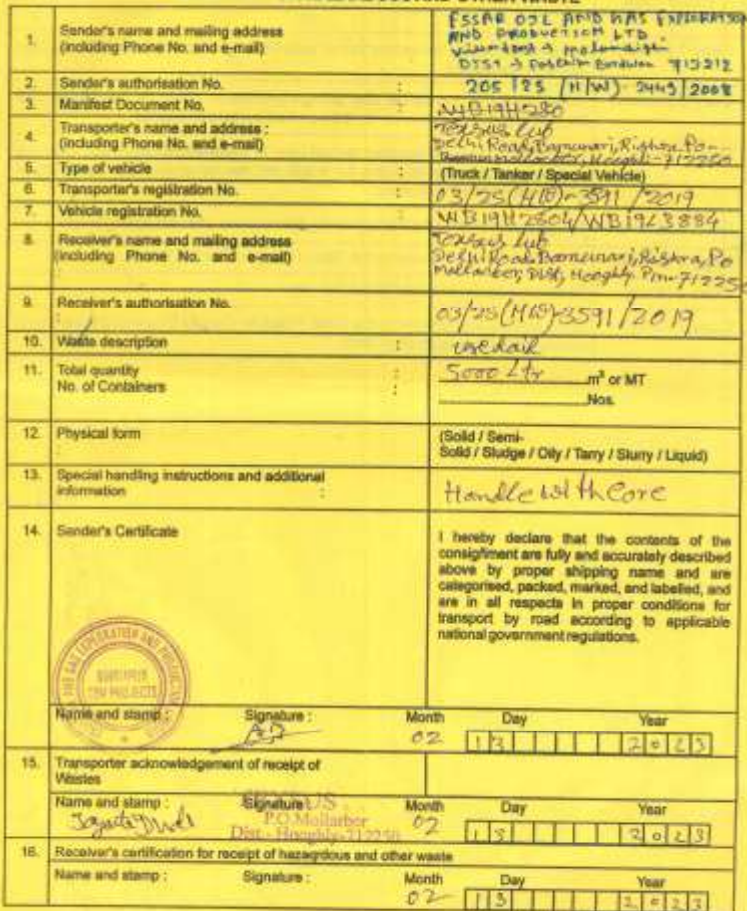 1. Sender's name and mailing address
(including Phone No. and e-mail)
ESSAR OIL AND GAS EXPLORATION
AND PRODUCTION LTD.
DIST → Paschim Bardwan 713212
2. Sender's authorisation No. :
205/25 (HW)-2443/2008
3. Manifest Document No. :
4. Transporter's name and address :
(including Phone No. and e-mail)
Delhi Road, Bamunari, Rishra, Po-
Hooghly-712250
5. Type of vehicle :
(Truck / Tanker / Special Vehicle)
6. Transporter's registration No. :
03/25(HW)-3591/2019
7. Vehicle registration No. :
WB19H2804/WB19L3884
8. Receiver's name and mailing address
(including Phone No. and e-mail)
Delhi Road, Bamunari, Rishra, Po
Mollarber, Dist, Hooghly. Pin-712250
9. Receiver's authorisation No.
03/25(HW)-3591/2019
10. Waste description :
used oil
11. Total quantity :
No. of Containers :
5000 Ltr m³ or MT
Nos.
12. Physical form
(Solid / Semi-
Solid / Sludge / Oily / Tarry / Slurry / Liquid)
13. Special handling instructions and additional
information :
Handle with Core
14. Sender's Certificate
I hereby declare that the contents of the
consignment are fully and accurately described
above by proper shipping name and are
categorised, packed, marked, and labelled, and
are in all respects in proper conditions for
transport by road according to applicable
national government regulations.
Name and stamp : Signature : Month Day Year
02 13 2023
15. Transporter acknowledgement of receipt of
Wastes
Name and stamp : Signature : Month Day Year
P.O.Mollarber
Dist.- Hooghly-712250
02 13 2023
16. Receiver's certification for receipt of hazardous and other waste
Name and stamp : Signature : Month Day Year
02 13 2023